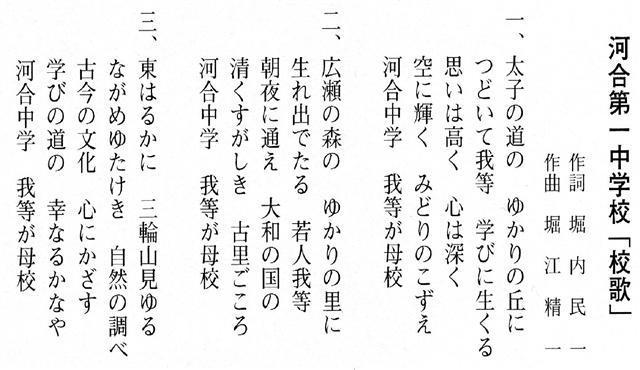 河合第一中学校「校歌」
作詞 堀内民一
作曲 堀江精一
一、太子の道の ゆかりの丘に
つどいて我等 学びに生くる
思いは高く 心は深く
空に輝く みどりのこずえ
河合中学 我等が母校
二、広瀬の森の ゆかりの里に
生れ出でたる 若人我等
朝夜に通え 大和の国の
清くすがしき 古里ごころ
河合中学 我等が母校
三、東はるかに 三輪山見ゆる
ながめゆたけき 自然の調べ
古今の文化 心にかざす
学びの道の 幸なるかなや
河合中学 我等が母校